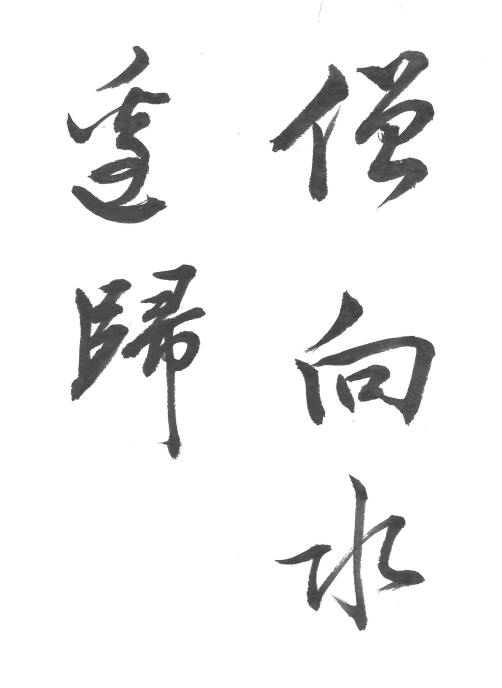 僧向水
邊歸